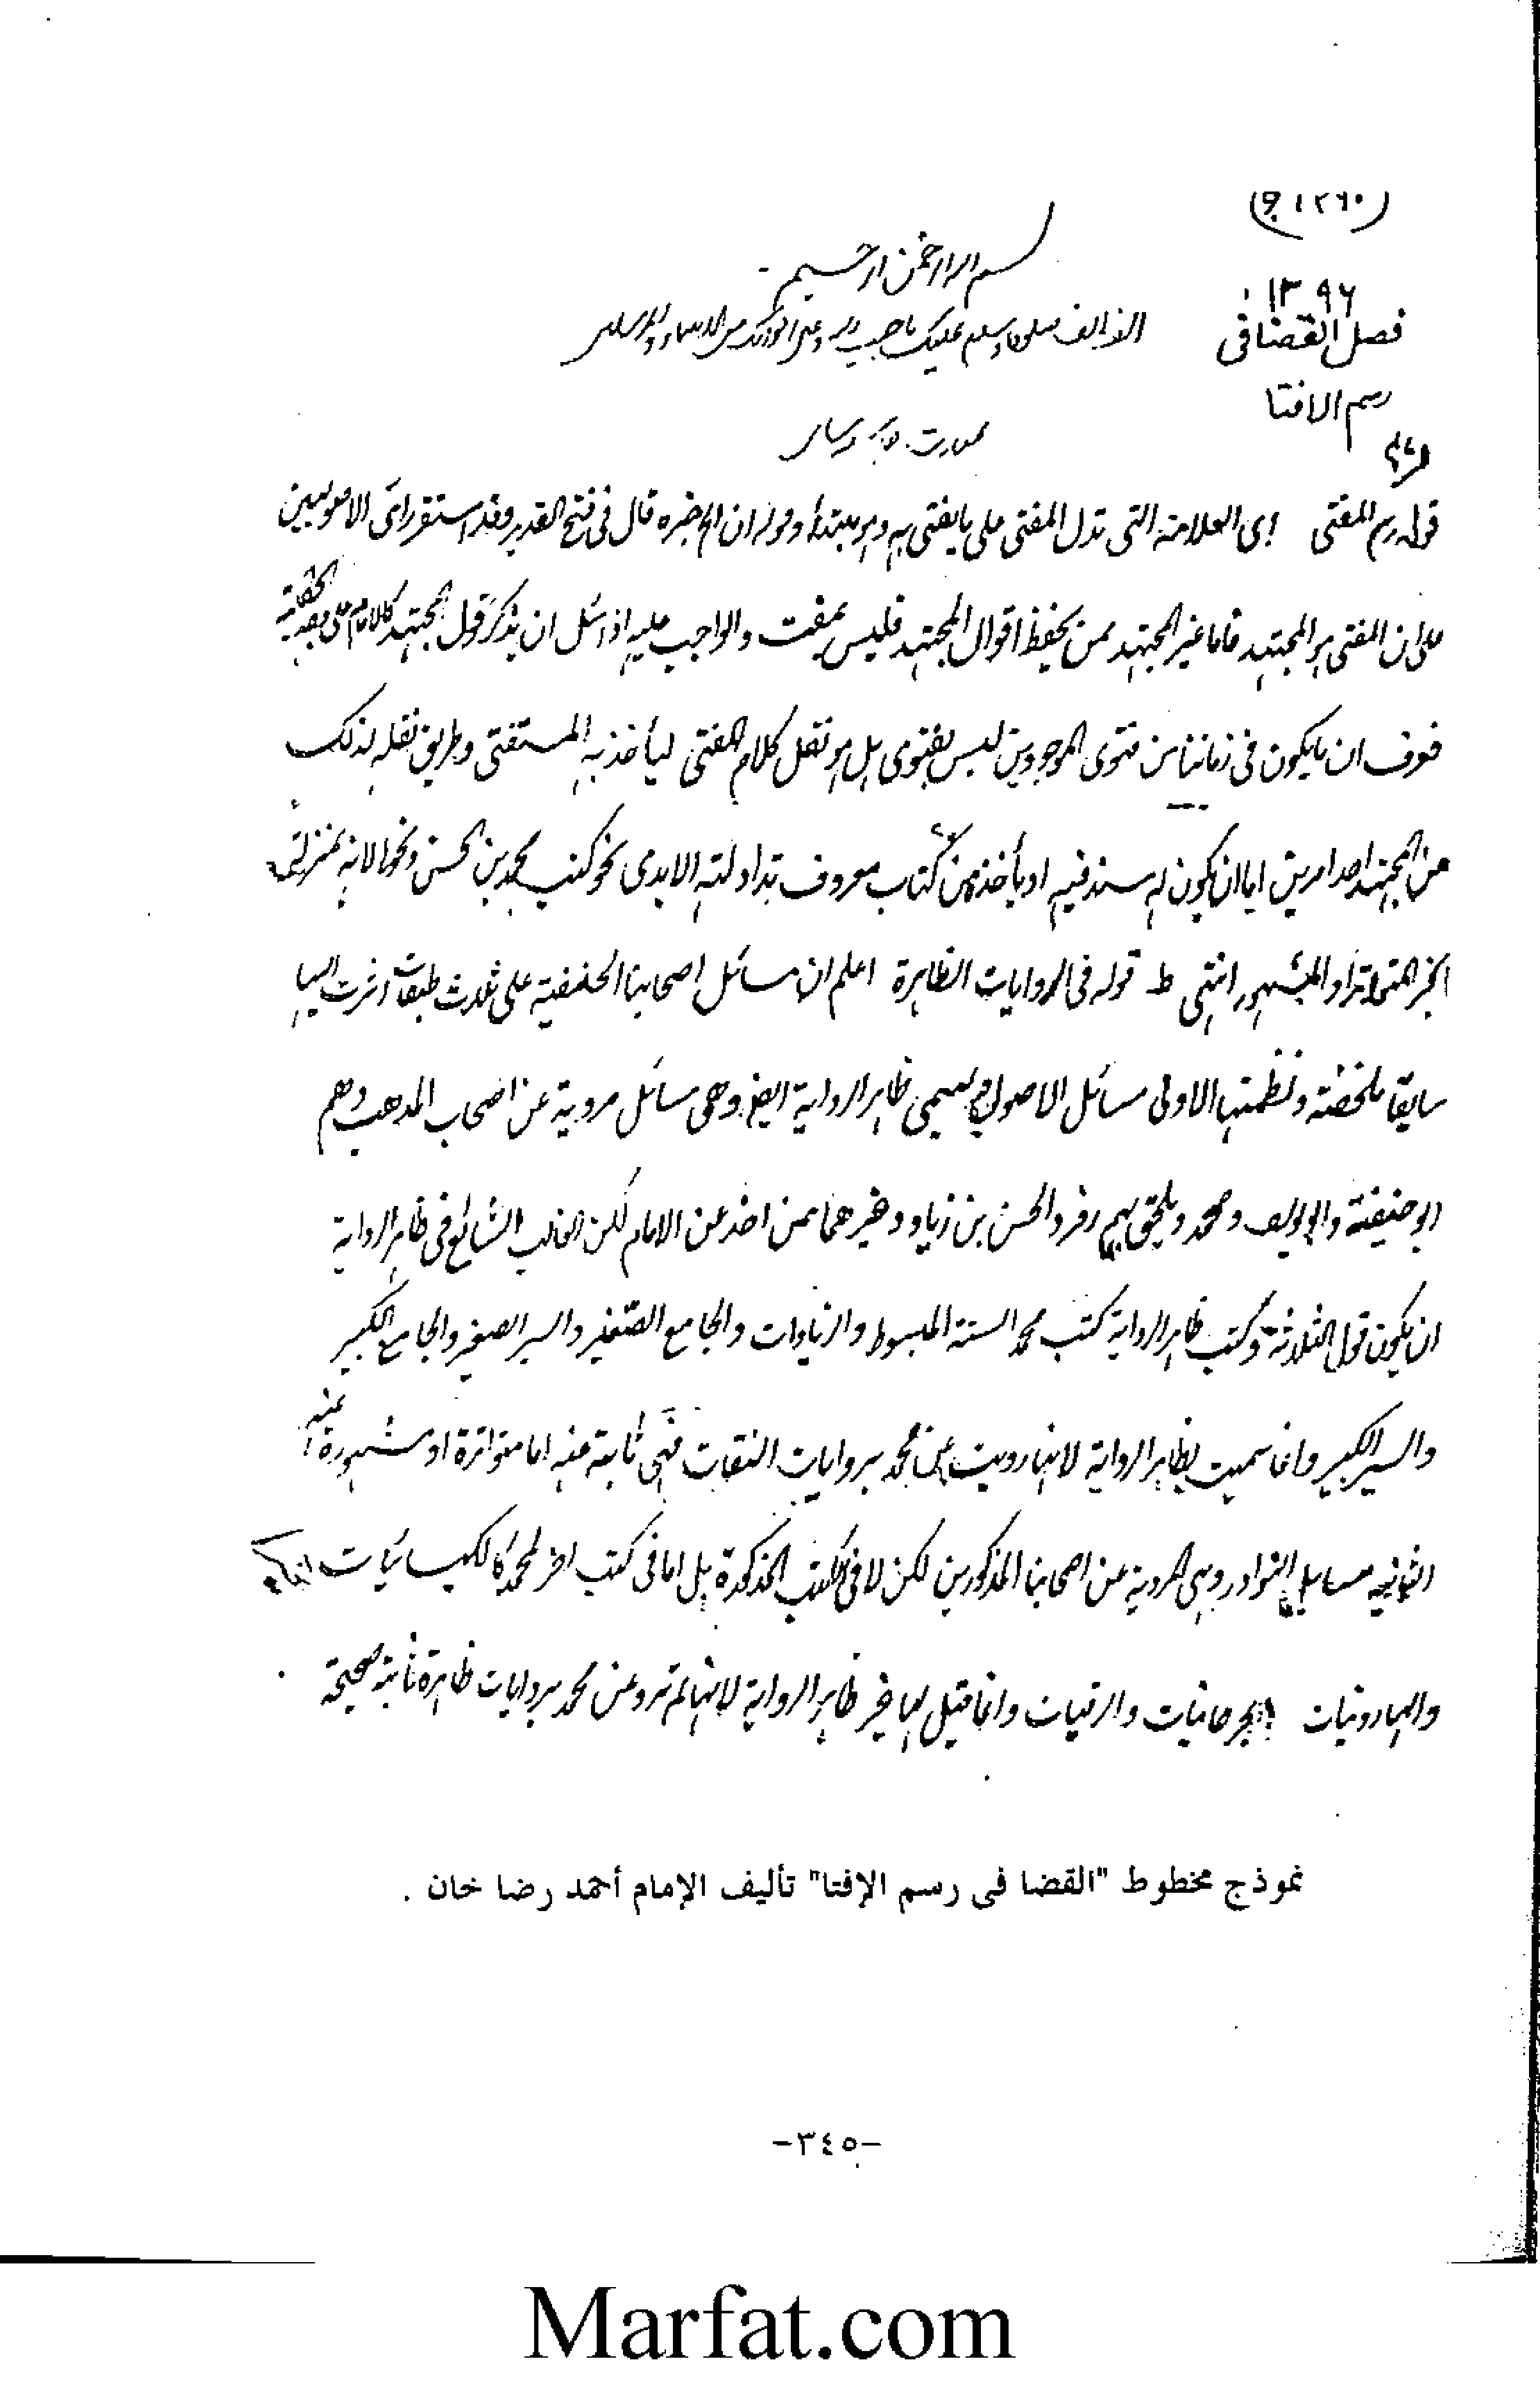 (١٢٦٠)
بسم الله الرحمن الرحيم
١٣٩٦
فصل القضا فى
رسم الافتا
قوله رسم المفتى اى العلامة التى تدل المفتى على ما يفتى به وهو مبتدأ وقوله ان الخ خبره قال فى فتح القدير وقد استقر راى الاصوليين
على ان المفتى هو المجتهد فاما غير المجتهد ممن يحفظ اقوال المجتهد فليس بمفت والواجب عليه اذا سئل ان يذكر قول المجتهد كالامام على وجه الحكاية
فعرف ان ما يكون فى زماننا من فتوى الموجودين ليس بفتوى بل هو نقل كلام المفتى ليأخذ به المستفتى وطريق نقله لذلك
عن المجتهد احد امرين اما ان يكون له سند فيه او يأخذه من كتاب معروف تداولته الايدى نحو كتب محمد بن الحسن ونحوها لانه بمنزلة
الخبر المتواتر او المشهور انتهى ط قوله فى الروايات الظاهرة اعلم ان مسائل اصحابنا الحنفية على ثلث طبقات اشرت اليها
سابقا ملخصة ونظمتها الاولى مسائل الاصول وتسمى ظاهر الرواية ايضا وهى مسائل مروية عن اصحاب المذهب وهم
ابو حنيفة وابو يوسف ومحمد ويلحق بهم زفر والحسن بن زياد وغيرهما ممن اخذ عن الامام لكن الغالب الشائع فى ظاهر الرواية
ان يكون قول الثلاثة وكتب ظاهر الرواية كتب محمد الستة المبسوط والزيادات والجامع الصغير والسير الصغير والجامع الكبير
والسير الكبير وانما سميت بظاهر الرواية لانها رويت عن محمد بروايات الثقات فهى ثابتة عنه اما متواترة او مشهورة عنه
الثانية مسايل النوادر وهى المروية عن اصحابنا المذكورين لكن لا فى الكتب المذكورة بل اما فى كتب اخر لمحمد كالكيسانيات
والهارونيات والجرجانيات والرقيات وانما قيل لها غير ظاهر الرواية لانها لم ترو عن محمد بروايات ظاهرة ثابتة صحيحة
نموذج مخطوط "القضا فى رسم الإفتا" تأليف الإمام أحمد رضا خان .
-٣٤٥-
Marfat.com